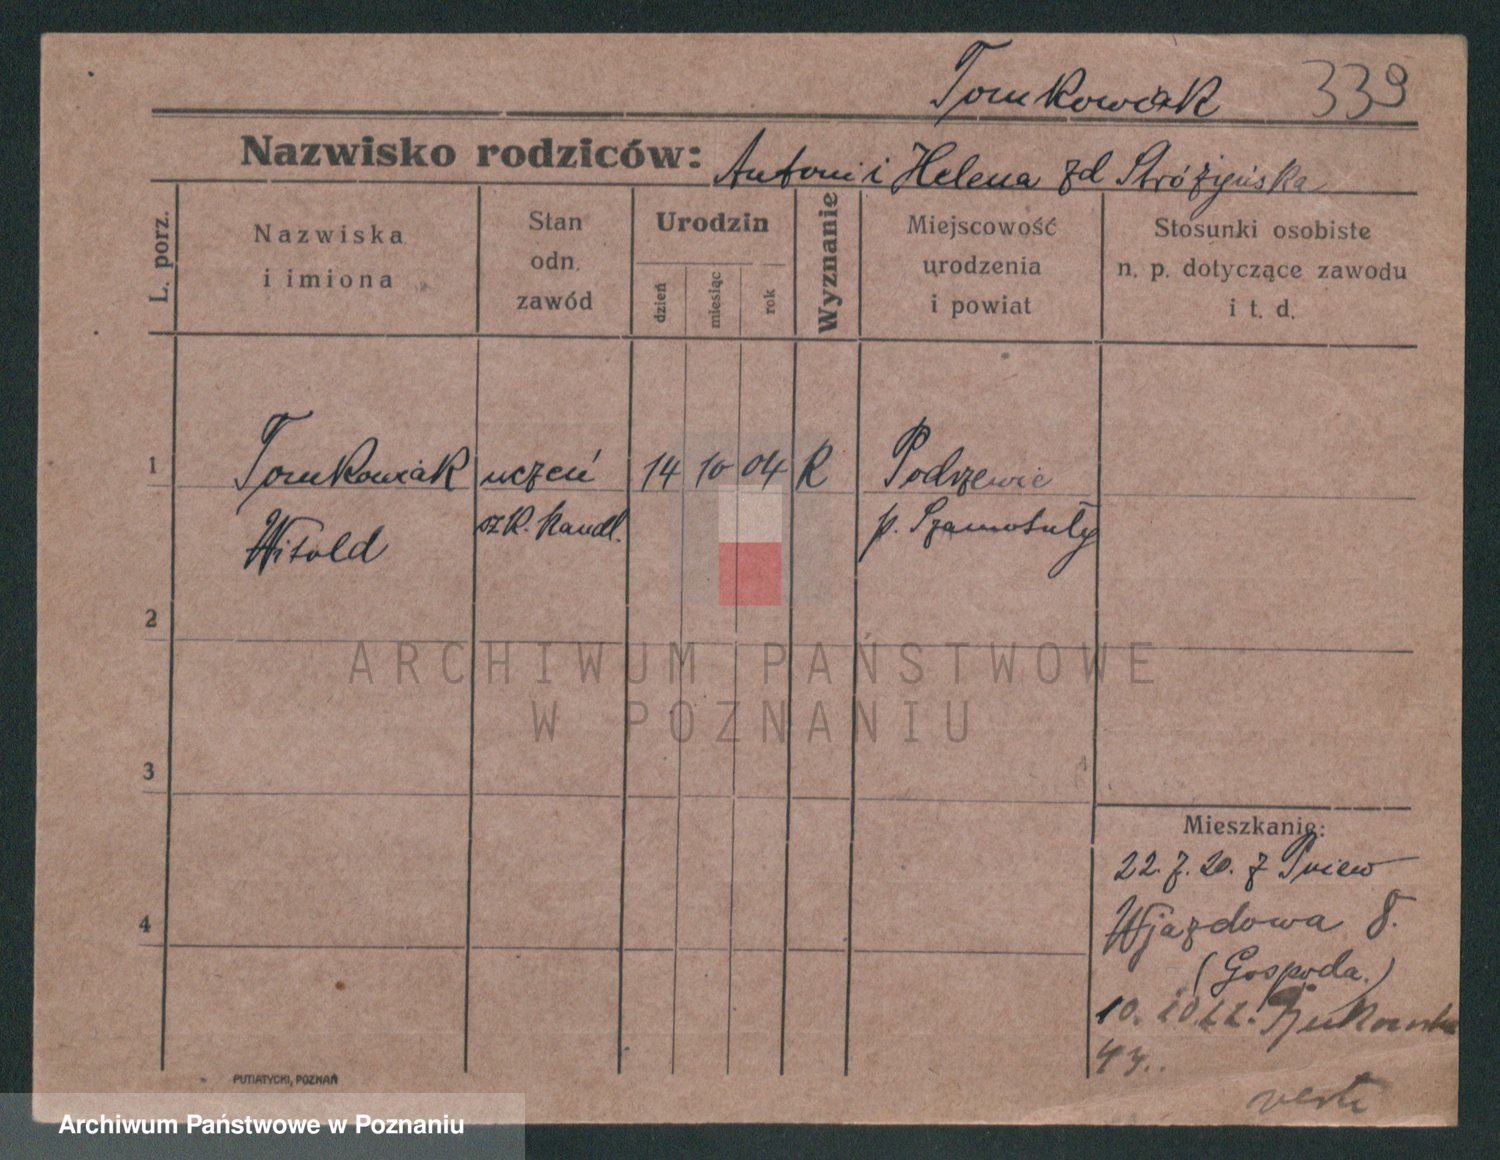 Tomkowiak 339
Nazwisko rodziców: Antoni i Helena zd Stróżyńska
L. porz.
Nazwiska
i imiona
Stan
odn.
zawód
Urodzin
dzień
miesiąc
rok
Wyznanie
Miejscowość
urodzenia
i powiat
Stosunki osobiste
n. p. dotyczące zawodu
i t. d.
1 Tomkowiak uczeń 14 10 04 R Podrzewie
Witold szk. handl. p. Szamotuły
2
ARCHIWUM PAŃSTWOWE
W POZNANIU
3
Mieszkanie:
22.7.20. z Pniew
4 Wjazdowa 8.
(Gospoda.)
10. 10 22. Żukowska
43..
verte
PUTIATYCKI, POZNAŃ
Archiwum Państwowe w Poznaniu